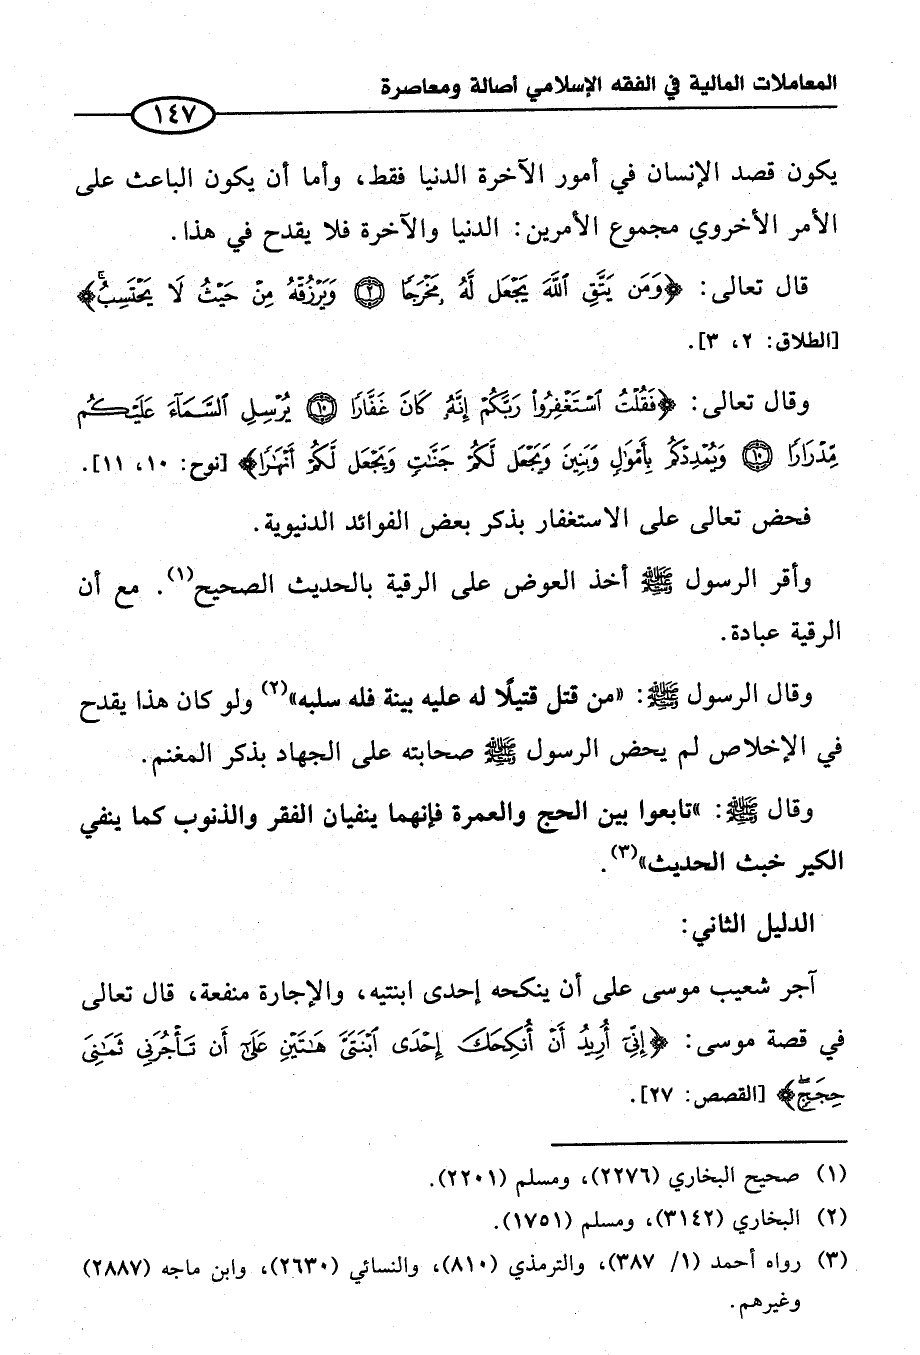 المعاملات المالية في الفقه الإسلامي أصالة ومعاصرة
١٤٧
يكون قصد الإنسان في أمور الآخرة الدنيا فقط، وأما أن يكون الباعث على
الأمر الأخروي مجموع الأمرين: الدنيا والآخرة فلا يقدح في هذا.
قال تعالى: ﴿وَمَن يَتَّقِ ٱللَّهَ يَجْعَل لَّهُۥ مَخْرَجًا ۝٢ وَيَرْزُقْهُ مِنْ حَيْثُ لَا يَحْتَسِبُۚ﴾
[الطلاق: ٢، ٣].
وقال تعالى: ﴿فَقُلْتُ ٱسْتَغْفِرُوا۟ رَبَّكُمْ إِنَّهُۥ كَانَ غَفَّارًا ۝١٠ يُرْسِلِ ٱلسَّمَآءَ عَلَيْكُم
مِّدْرَارًا ۝١٠ وَيُمْدِدْكُم بِأَمْوَٰلٍ وَبَنِينَ وَيَجْعَل لَّكُمْ جَنَّٰتٍ وَيَجْعَل لَّكُمْ أَنْهَٰرًا﴾ [نوح: ١٠، ١١].
فحض تعالى على الاستغفار بذكر بعض الفوائد الدنيوية.
وأقر الرسول ﷺ أخذ العوض على الرقية بالحديث الصحيح(١). مع أن
الرقية عبادة.
وقال الرسول ﷺ: «من قتل قتيلًا له عليه بينة فله سلبه»(٢) ولو كان هذا يقدح
في الإخلاص لم يحض الرسول ﷺ صحابته على الجهاد بذكر المغنم.
وقال ﷺ: »تابعوا بين الحج والعمرة فإنهما ينفيان الفقر والذنوب كما ينفي
الكير خبث الحديث»(٣).
الدليل الثاني:
آجر شعيب موسى على أن ينكحه إحدى ابنتيه، والإجارة منفعة، قال تعالى
في قصة موسى: ﴿إِنِّىٓ أُرِيدُ أَنْ أُنكِحَكَ إِحْدَى ٱبْنَتَىَّ هَٰتَيْنِ عَلَىٰٓ أَن تَأْجُرَنِى ثَمَٰنِىَ
حِجَجٍۖ﴾ [القصص: ٢٧].
(١) صحيح البخاري (٢٢٧٦)، ومسلم (٢٢٠١).
(٢) البخاري (٣١٤٢)، ومسلم (١٧٥١).
(٣) رواه أحمد (١/ ٣٨٧)، والترمذي (٨١٠)، والنسائي (٢٦٣٠)، وابن ماجه (٢٨٨٧)
وغيرهم.